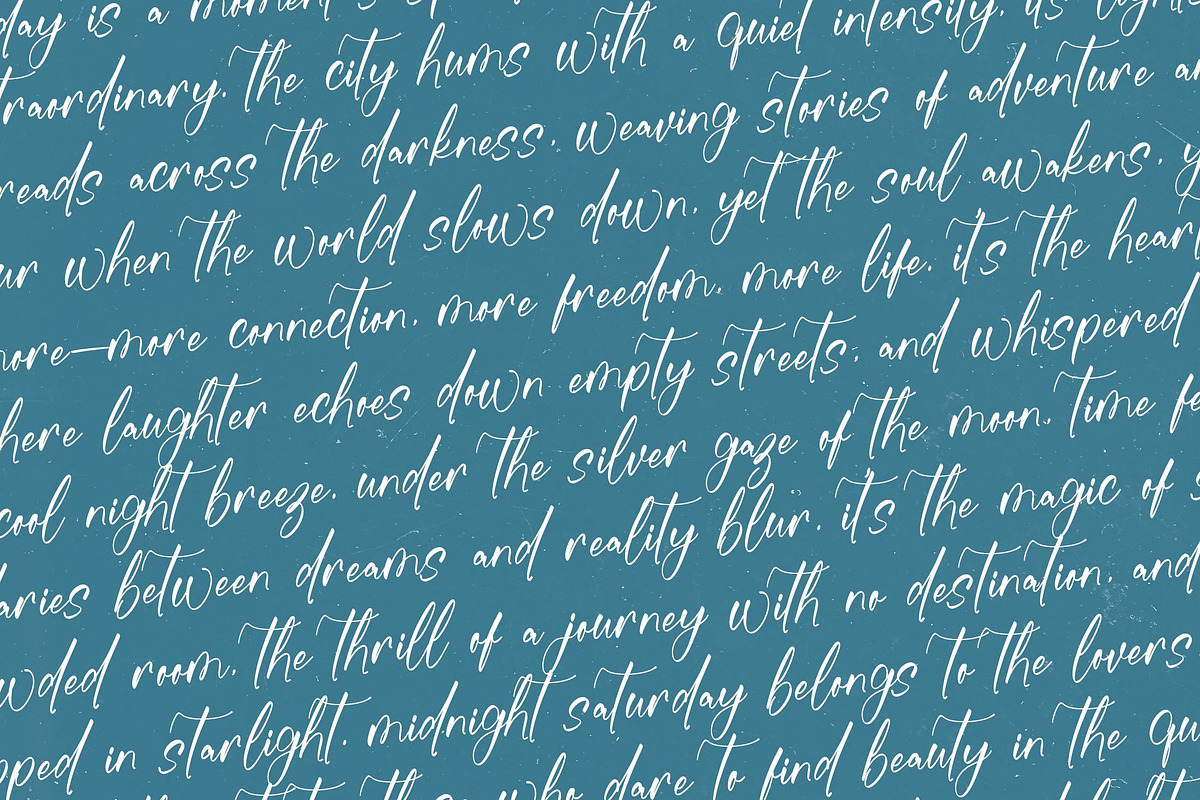 day is a moment
traordinary. the city hums with a quiet intensity, its
reads across the darkness, weaving stories of adventure
ur when the world slows down, yet the soul awakens. y
more—more connection, more freedom, more life. it's the heart
here laughter echoes down empty streets, and whispered
cool night breeze. under the silver gaze of the moon, time fe
aries between dreams and reality blur. it's the magic of s
wded room, the thrill of a journey with no destination, and
pped in starlight. midnight saturday belongs to the lovers
who dare to find beauty in the qu